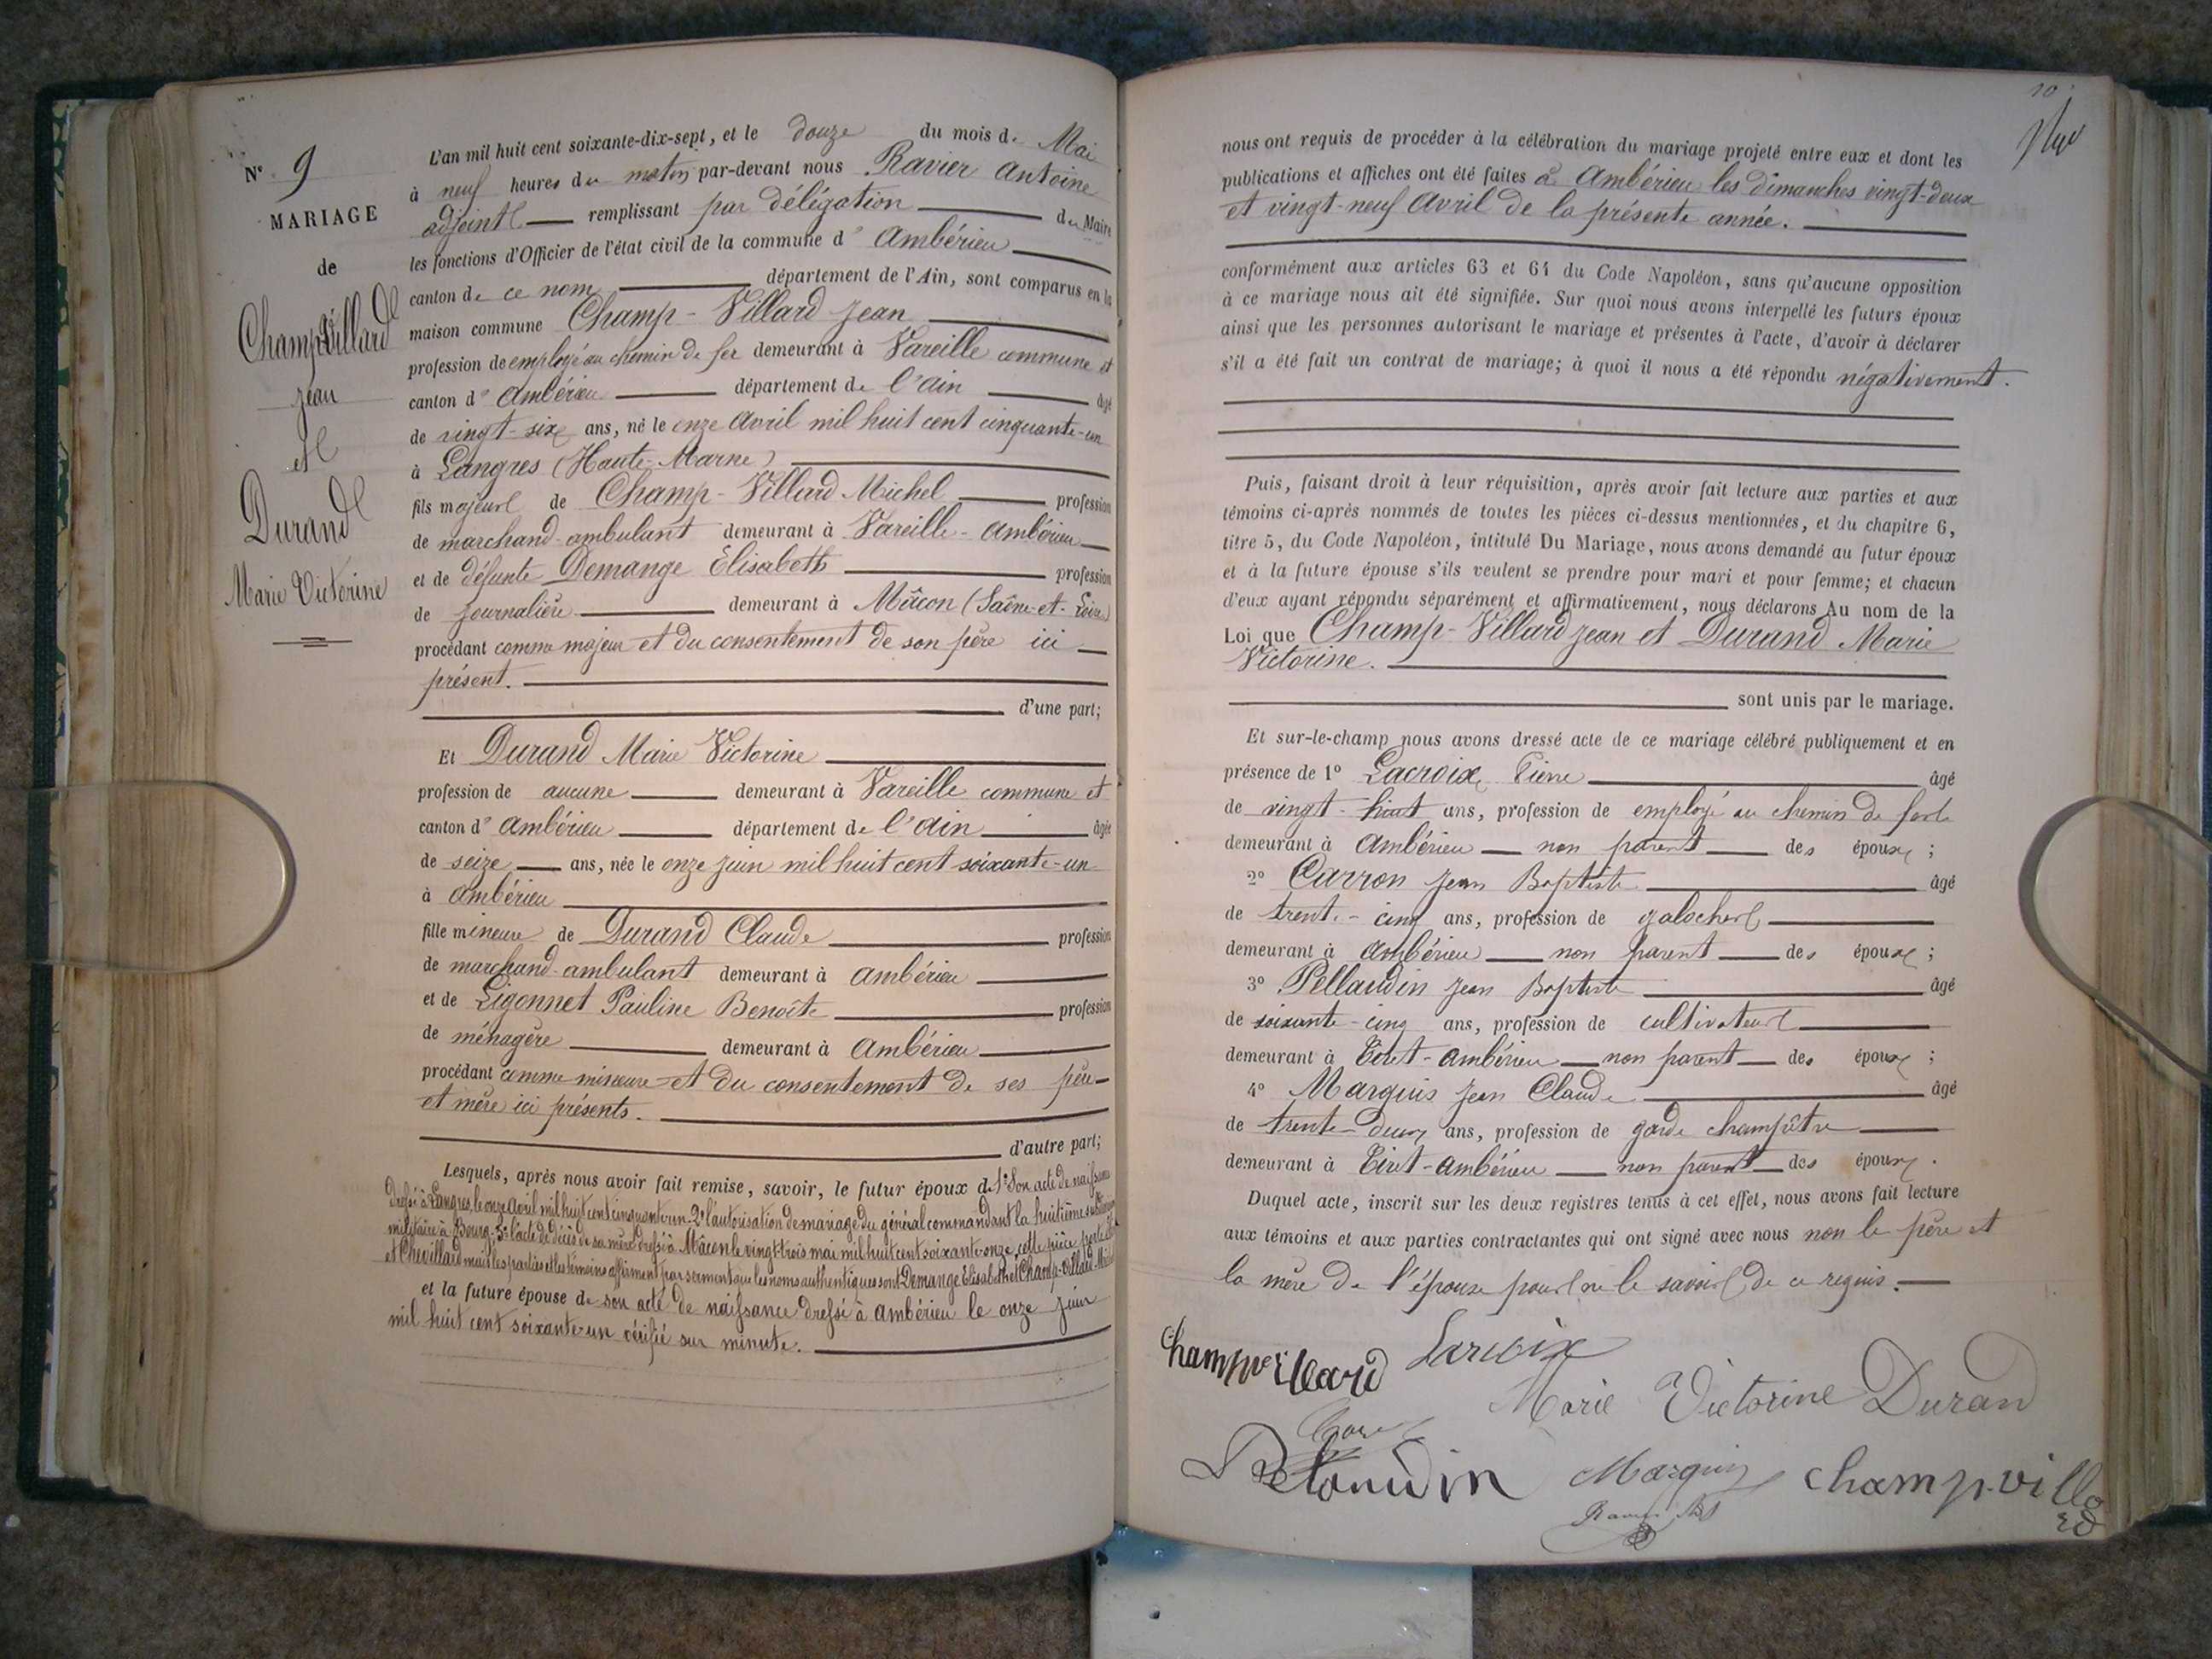 N° 9
MARIAGE
de
Champvillard
Jean
et
Durand
Marie Victorine
L'an mil huit cent soixante-dix-sept, et le douze du mois de Mai
à neuf heures du matin par-devant nous Ravier Antoine
adjoint remplissant par délégation du Maire
les fonctions d'Officier de l'état civil de la commune d' Ambérieu
canton de ce nom département de l'Ain, sont comparus en la
maison commune Champ-Villard Jean
profession de employé au chemin de fer demeurant à Vareille commune et
canton d' Ambérieu département de l'ain âgé
de vingt-six ans, né le onze Avril mil huit cent cinquante-un
à Langres (Haute-Marne)
fils majeur de Champ-Villard Michel profession
de marchand-ambulant demeurant à Vareille-Ambérieu
et de défunte Demange Elisabeth profession
de journalière demeurant à Mâcon (Saône-et-Loire)
procédant comme majeur et du consentement de son père ici
présent.
d'une part;
Et Durand Marie Victorine
profession de aucune demeurant à Vareille commune et
canton d' Ambérieu département de l'ain âgée
de seize ans, née le onze juin mil huit cent soixante-un
à Ambérieu
fille mineure de Durand Claude profession
de marchand-ambulant demeurant à Ambérieu
et de Ligonnet Pauline Benoîte profession
de ménagère demeurant à Ambérieu
procédant comme mineure et du consentement de ses père
et mère ici présents.
d'autre part;
Lesquels, après nous avoir fait remise, savoir, le futur époux de 1° Son acte de naissance
dressé à Langres, le onze avril mil huit cent cinquante-un 2° l'autorisation de mariage du général commandant la huitième subdivision
militaire à Bourg, 3° l'acte de décès de sa mère dressé à Mâcon le vingt-trois mai mil huit cent soixante-onze, cette pièce porte
et Chevillard mais les parties et les témoins affirment par serment que les noms authentiques sont Demange Elisabeth et Champ-Villard Michel
et la future épouse de son acte de naissance dressé à Ambérieu le onze juin
mil huit cent soixante-un vérifié sur minute.
10
nous ont requis de procéder à la célébration du mariage projeté entre eux et dont les
publications et affiches ont été faites à Ambérieu les dimanches vingt-deux
et vingt-neuf Avril de la présente année.
conformément aux articles 63 et 64 du Code Napoléon, sans qu'aucune opposition
à ce mariage nous ait été signifiée. Sur quoi nous avons interpellé les futurs époux
ainsi que les personnes autorisant le mariage et présentes à l'acte, d'avoir à déclarer
s'il a été fait un contrat de mariage; à quoi il nous a été répondu négativement.
Puis, faisant droit à leur réquisition, après avoir fait lecture aux parties et aux
témoins ci-après nommés de toutes les pièces ci-dessus mentionnées, et du chapitre 6,
titre 5, du Code Napoléon, intitulé Du Mariage, nous avons demandé au futur époux
et à la future épouse s'ils veulent se prendre pour mari et pour femme; et chacun
d'eux ayant répondu séparément et affirmativement, nous déclarons Au nom de la
Loi que Champ-Villard Jean et Durand Marie
Victorine.
sont unis par le mariage.
Et sur-le-champ nous avons dressé acte de ce mariage célébré publiquement et en
présence de 1° Lacroix Pierre âgé
de vingt-huit ans, profession de employé au chemin de fer
demeurant à Ambérieu non parent des époux;
2° Carron Jean Baptiste âgé
de trente-cinq ans, profession de galocher
demeurant à Ambérieu non parent des époux;
3° Pellaudin Jean Baptiste âgé
de soixante-cinq ans, profession de cultivateur
demeurant à Tiret-Ambérieu non parent des époux;
4° Marquis Jean Claude âgé
de trente-deux ans, profession de garde champêtre
demeurant à Tiret-Ambérieu non parent des époux.
Duquel acte, inscrit sur les deux registres tenus à cet effet, nous avons fait lecture
aux témoins et aux parties contractantes qui ont signé avec nous non le père et
la mère de l'épouse pour ne le savoir de ce requis.
Champvillard Lacroix
Marie Victorine Durand
Pelaudin Marquis champ-villard